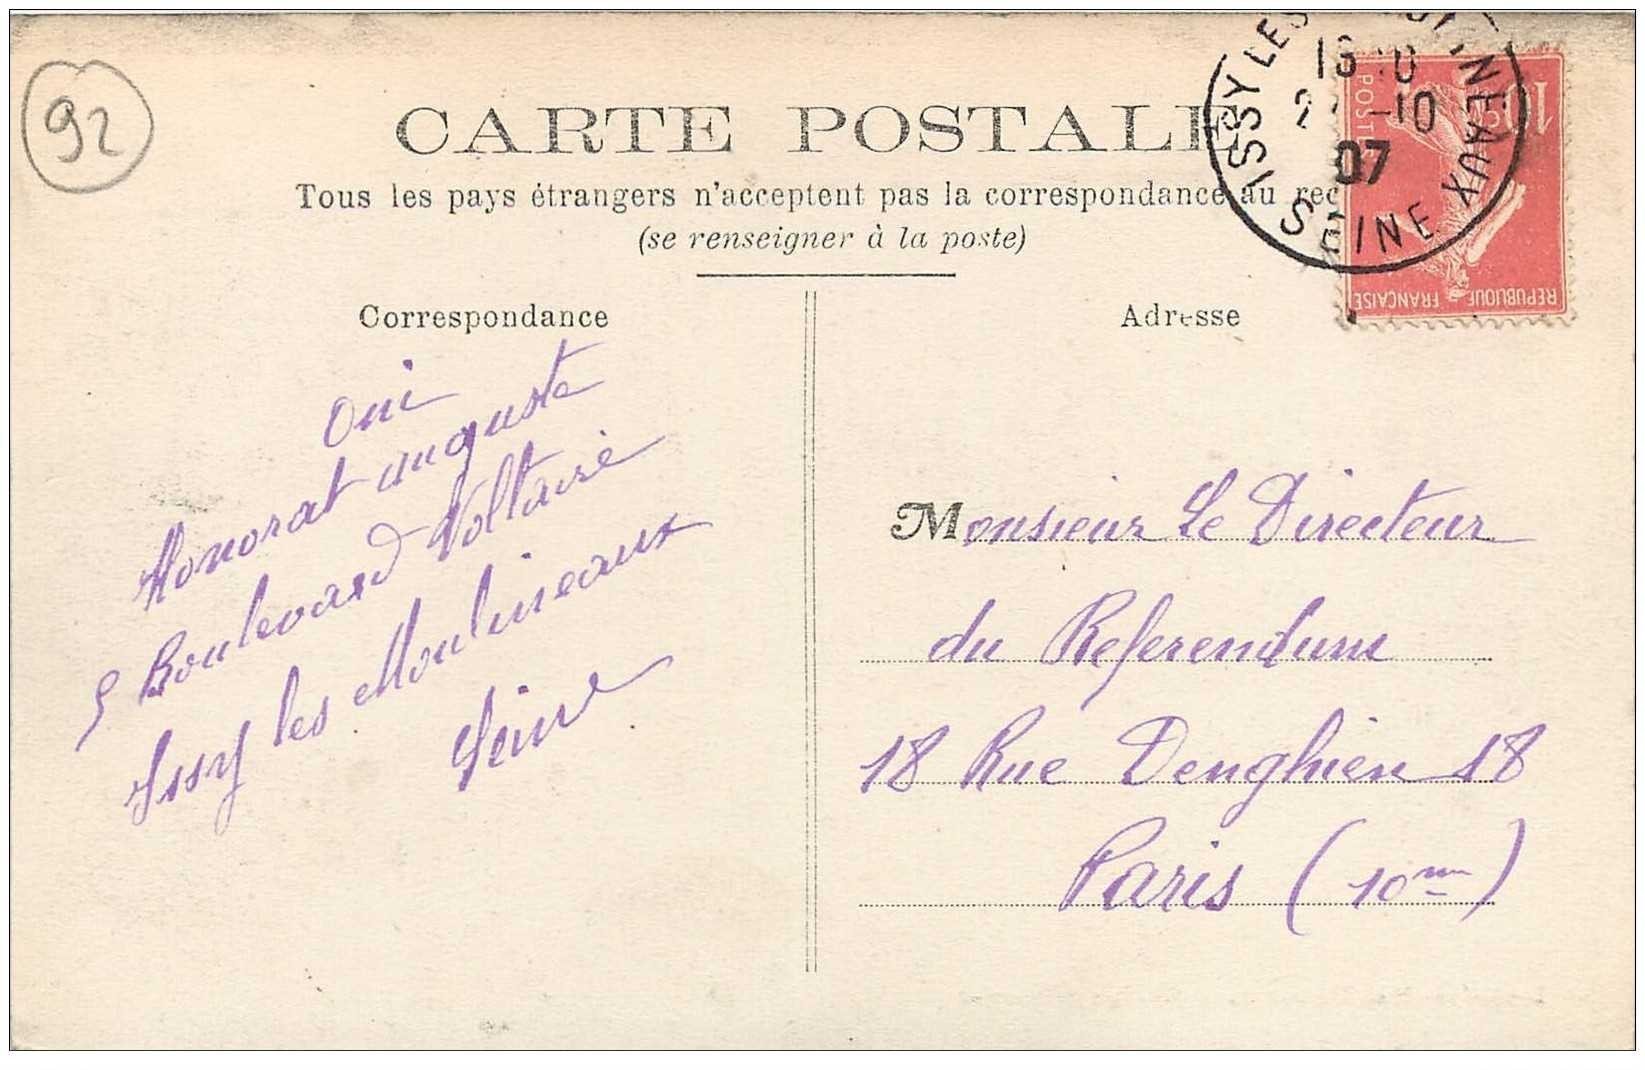 92
CARTE POSTALE
Tous les pays étrangers n'acceptent pas la correspondance au rec
(se renseigner à la poste)
ISSY LES NEAUX
10
07
SEINE
10
POSTES
REPUBLIQUE FRANÇAISE
Correspondance
oui
Honorat auguste
5 Boulevard Voltaire
Issy les Moulineaux
Seine
Adresse
Monsieur Le Directeur
du Referendum
18 Rue Denghien 18
Paris (10me)